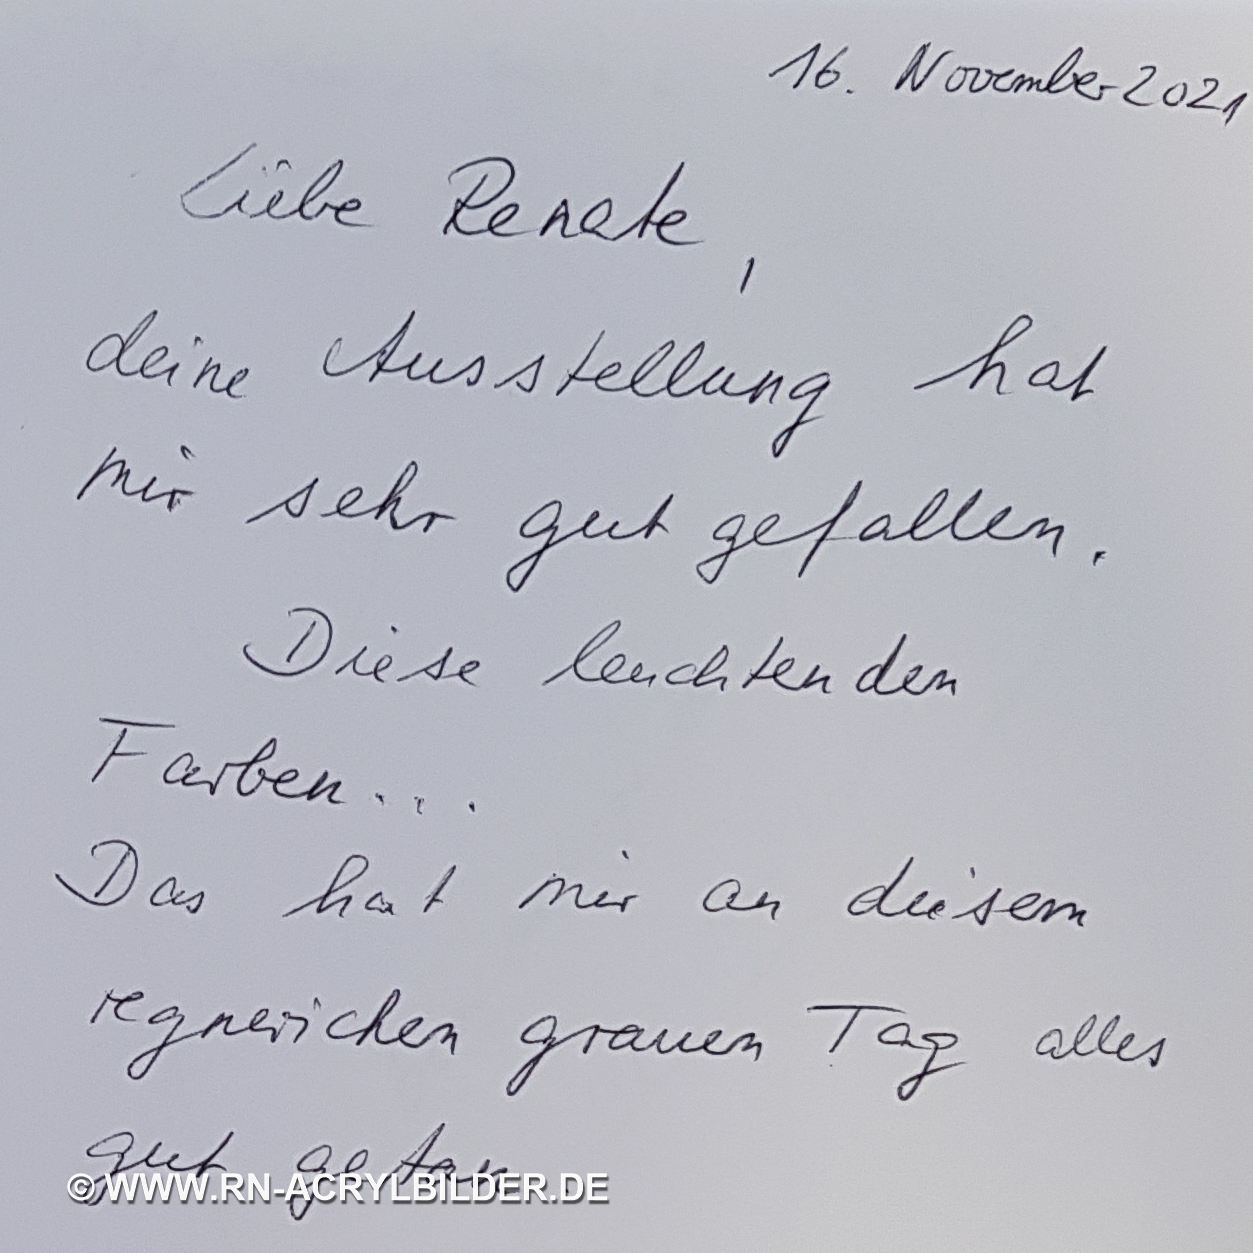 16. November 2021
Liebe Renate,
deine Ausstellung hat
mir sehr gut gefallen.
Diese leuchtenden
Farben...
Das hat mir an diesem
regnerichen grauen Tag alles
gut getan
© WWW.RN-ACRYLBILDER.DE